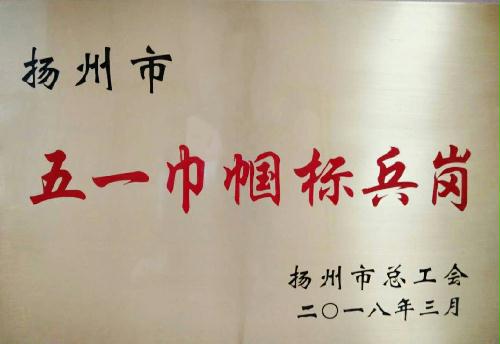 扬州市
五一巾帼标兵岗
扬州市总工会
二〇一八年三月